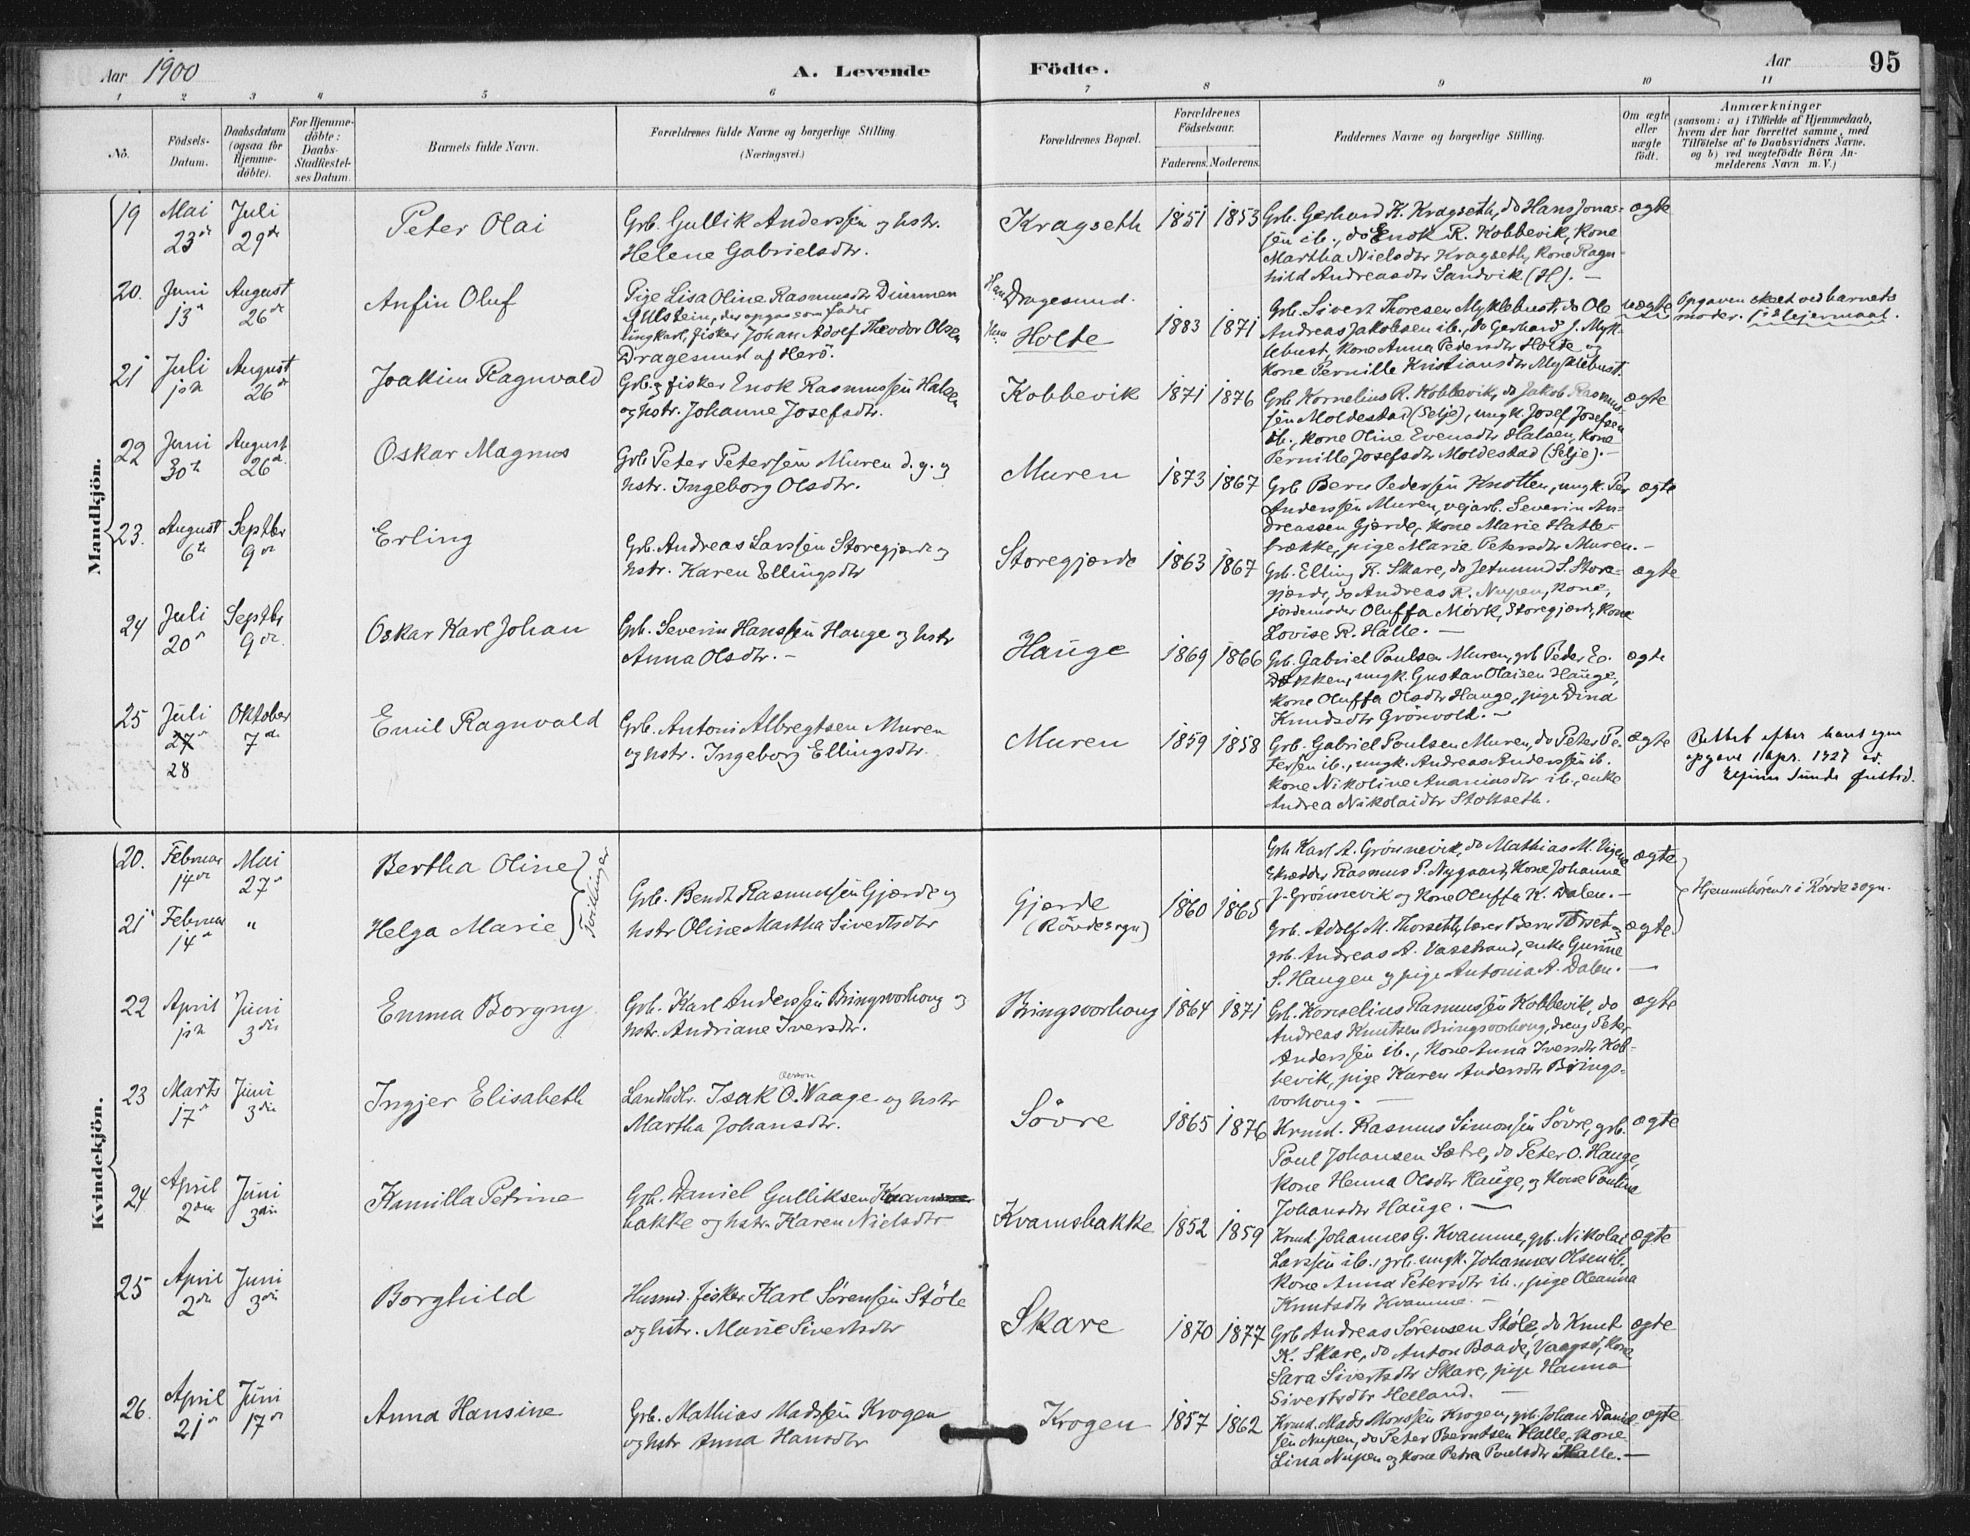 Aar 1900
A. Levende
Födte.
Aar
95
1 2 3 4 5 6 7 8 9 10 11
No.
Födsels-
Datum.
Daabsdatum
(ogsaa for
Hjemme-
döbte).
For Hjemme-
döbte:
Daabs-
Stadfæstel-
ses Datum.
Barnets fulde Navn.
Forældrenes fulde Navne og borgerlige Stilling.
(Næringsvei.)
Forældrenes Bopæl.
Forældrenes
Födselsaar.
Faderens. Moderens.
Faddernes Navne og borgerlige Stilling.
Om ægte
eller
uægte
födt.
Anmærkninger
(saasom: a) i Tilfælde af Hjemmedaab,
hvem der har forrettet samme, med
Tilföielse af to Daabsvidners Navne,
og b) ved uægtefödte Börn An-
melderens Navn m. V.)
Mandkjön.
19 Mai 23de Juli 29de
Peter Olai
Grb. Gullik Anderssen og hstr.
Helene Gabrielsdtr.
Kragseth 1851 1853
Grb. Gerhard K. Kragseth, do Hans Jonas-
sen ib., do Enok R. Kobbevik, kone
Martha Nielsdtr Kragseth, kone Ragn-
hild Andreasdtr Sandvik (H). —
ægte
20. Juni 13de August 26de
Anfin Oluf
Pige Lisa Oline Rasmusdtr Dimmen
Ulstein, der opgav som fader
ungkarl, fisker Johan Adolf Theodor Olsen
Dragesund af Herö.
Han Dragesund.
Hun Holte 1883 1871
Grb. Sivert Thoresen Myklebust, do Ole
Andreas Jakobsen ib., do Gerhard J. Myk-
lebust, kone Anna Pedersdtr Holte og
kone Pernille Kristiansdtr Myklebust.
uægte
Opgaven skeet ved barnets
moder. 1ste lejermaal.
21 Juli 1ste August 26de
Joakim Ragnvald
Grb. og fisker Enok Rasmussen Halsen
og hstr. Johanne Josefsdtr.
Kobbevik 1871 1876
Grb Kornelius R. Kobbevik, do Jakob Rasmus-
sen Moldestad (Selje), ungk. Josef Josefsen
ib., kone Oline Evensdtr Halsen, kone
Pernille Josefsdtr Moldestad (Selje). —
ægte
22 Juni 30te August 26de
Oskar Magnus
Grb Peter Petersen Muren d. y. og
hstr. Ingeborg Olsdtr.
Muren 1873 1867
Grb Bern Pedersen Knotten, ungk. Per
Anderssen Muren, vejarb. Severin An-
dreassen Gjærde, kone Marie Hatle-
brække, pige Marie Petersdtr Muren. —
ægte
23. August 6te Septbr 9de
Erling
Grb. Andreas Larssen Storegjærde og
hstr. Karen Ellingsdtr
Storegjærde 1863 1867
Grb. Elling R. Skare, do Jetmund S. Store-
gjærde, do Andreas R. Nupen, kone,
jordemoder Oluffa Mörk, Storegjærde, kone
Lovise R. Halle. —
ægte
24 Juli 20de Septbr 9de
Oskar Karl Johan
Grb. Severin Hanssen Hauge og hstr
Anna Olsdtr. —
Hauge 1869 1866
Grb. Gabriel Poulsen Muren, grb Peder E.
Dokken, ungk. Gustav Olaisen Hauge,
kone Oluffa Olsdtr Hauge, pige Dina
Knudsdtr Grönvold. —
ægte
25 Juli 27de 28 Oktober 7de
Emil Ragnvald
Grb. Antoni Albregtsen Muren
og hstr. Ingeborg Ellingsdtr.
Muren 1859 1858
Grb. Gabriel Poulsen Muren, do Peter Pe-
tersen ib., ungk. Andreas Anderssen ib.
kone Nikoline Ananiasdtr ib., enke
Andrea Nikolaidtr Stokseth.
ægte
Rettet efter hans egen
opgave 11 apr. 1927
Kvindekjön.
20. Februar 14de Mai 27de
Bertha Oline
21 Februar 14de "
Helga Marie
Tvillinger
Grb. Bendt Rasmussen Gjærde og
hstr Oline Martha Sivertsdtr
Gjerde
(Rövdesogn) 1860 1865
Grb Karl A. Grönnevik, do Mathias M. Vigen
skrædder Rasmus P. Nygaard, kone Johanne
J. Grönnevik og kone Oluffa K. Dalen. —
ægte
Hjemmehörende i Rövdesogn.
Grb. Adolf M. Thorseth, lærer Bern Thorset og
grb. Andreas A. Vasstrand, enke Gurine
S. Haugen og pige Antonia A. Dalen. —
ægte
22 April 1ste Juni 3die
Emma Borgny
Grb. Karl Anderssen Bringsvorhoug og
hstr. Andriane Iversdtr.
Bringsvorhoug 1864 1871
Grb. Kornelius Rasmussen Kobbevik, do
Andreas Knutsen Bringsvorhoug, dreng Peter
Anderssen ib., kone Anna Iversdtr Kob-
bevik, pige Karen Andersdtr Brings-
vorhoug. —
ægte
23 Marts 17de Juni 3die
Ingjer Elisabeth
Landhdlr. Isak O. Waage og hstr
Martha Johansdtr.
Sövre 1865 1876
Krmd. Rasmus Simonsen Sövre, grb.
Poul Johansen Sætre, do Peter O. Hauge,
kone Henna Olsdtr Hauge, og kone Pauline
Johansdtr Hauge. —
ægte
24 April 2den Juni 3die
Kamilla Petrine
Grb. Daniel Gulliksen Kvams-
bakke og hstr. Karen Nielsdtr
Kvamsbakke 1852 1859
Krmd. Johannes G. Kvamme, grb. Nikolai
Larssen ib., grb. ungk. Johannes Olsen ib,
kone Anna Petersdtr ib., pige Oleanna
Knutsdtr Kvamme. —
ægte
25 April 2den Juni 3die
Borghild
Husmd. fisker Karl Sörensen Stöle
og hstr. Marie Sivertsdtr
Skare 1870 1877
Grb Andreas Sörensen Stöle, do Knut
K. Skare, do Anton Baade, Vaagsö, kone
Sara Sivertsdtr Skare, pige Hanna
Sivertsdtr Helland. —
ægte
26. April 21de Juni 17de
Anna Hansine
Grb. Mathias Madssen Krogen
og hstr Anna Hansdtr
Krogen 1857 1862
Krmd. Mads Monssen Krogen, grb. Johan Daniel-
sen Nupen, do Peter Berntsen Halle, kone
Lina Nupen og kone Petra Poulsdtr Halle. —
ægte